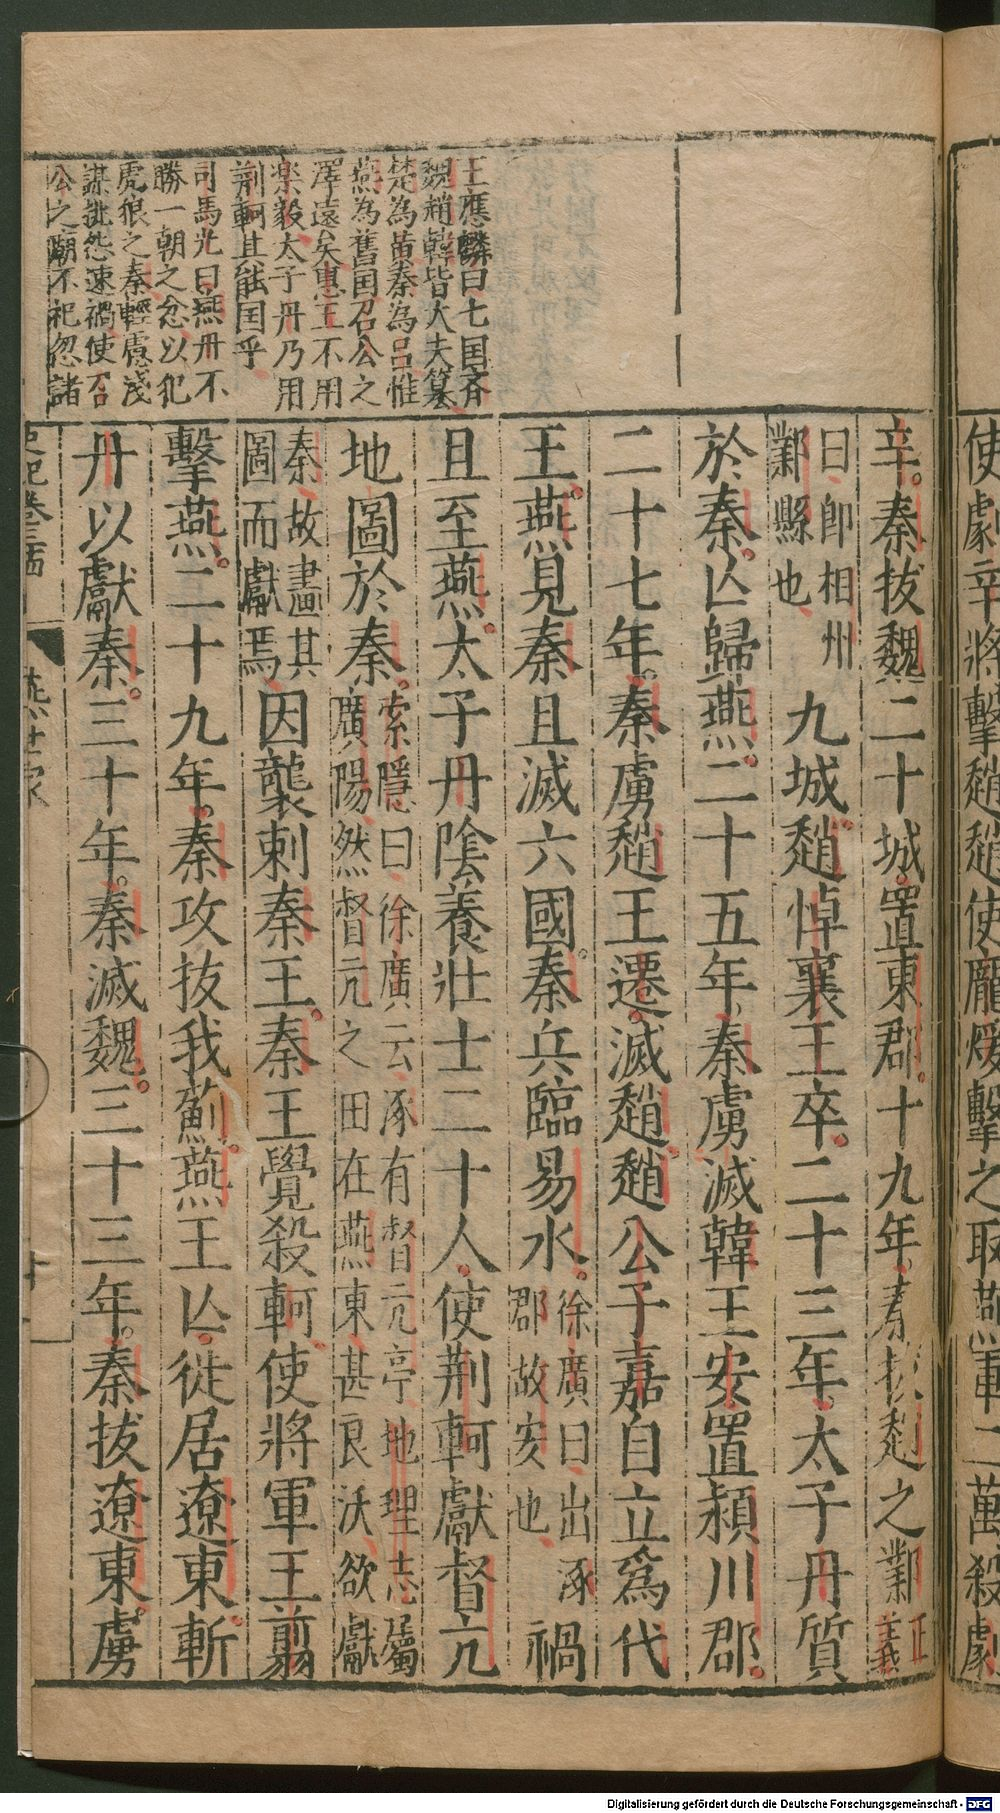 使劇辛將擊趙趙使龐煖擊之取燕軍二萬殺劇
辛秦拔魏二十城置東郡十九年秦拔趙之鄴正義
曰即相州鄴縣也九城趙悼襄王卒二十三年太子丹質
於秦亾歸燕二十五年秦虜滅韓王安置潁川郡
二十七年秦虜趙王遷滅趙趙公子嘉自立爲代
王燕見秦且滅六國秦兵臨易水徐廣曰出涿郡故安也禍
且至燕太子丹陰養壯士二十人使荆軻獻督亢
地圖於秦索隱曰徐廣云涿有督亢亭地理志屬廣陽然督亢之田在燕東甚良沃欲獻
秦故畫其圖而獻焉因襲刺秦王秦王覺殺軻使將軍王翦
擊燕二十九年秦攻拔我薊燕王亾徙居遼東斬
丹以獻秦三十年秦滅魏三十三年秦拔遼東虜
王應麟曰七国斉
魏趙韓皆大夫篡
楚為黃秦為呂惟
燕為舊国召公之
澤遠矣惠王不用
楽毅太子丹乃用
荆軻其能国乎
司馬光曰燕丹不
勝一朝之忿以犯
虎狼之秦輕慮淺
謀挑怨速禍使召
公之廟不祀忽諸
史記卷三十四
燕世家
Digitalisierung gefördert durch die Deutsche Forschungsgemeinschaft - DFG